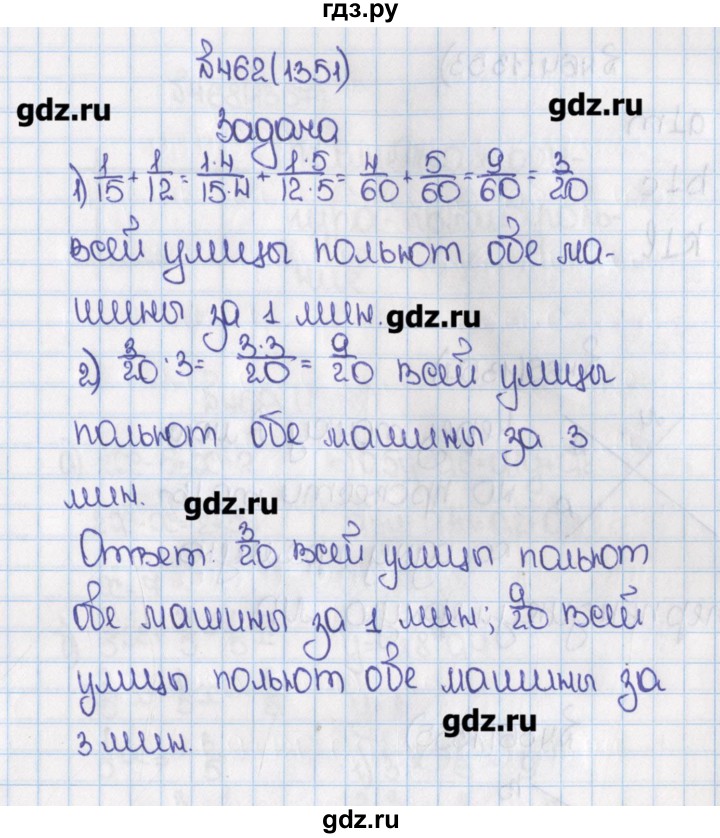 гдз.ру
№462(1351)
gdz.ru
gdz.ru
Задача
1) 1/15 + 1/12 = 1·4/15·4 + 1·5/12·5 = 4/60 + 5/60 = 9/60 = 3/20
всей улицы польют обе ма-
шины за 1 мин.
gdz.ru
2) 3/20 · 3 = 3·3/20 = 9/20 всей улицы
польют обе машины за 3
мин.
gdz.ru
Ответ: 3/20 всей улицы польют
обе машины за 1 мин; 9/20 всей
улицы польют обе машины за
gdz.ru
3 мин.
gdz.ru